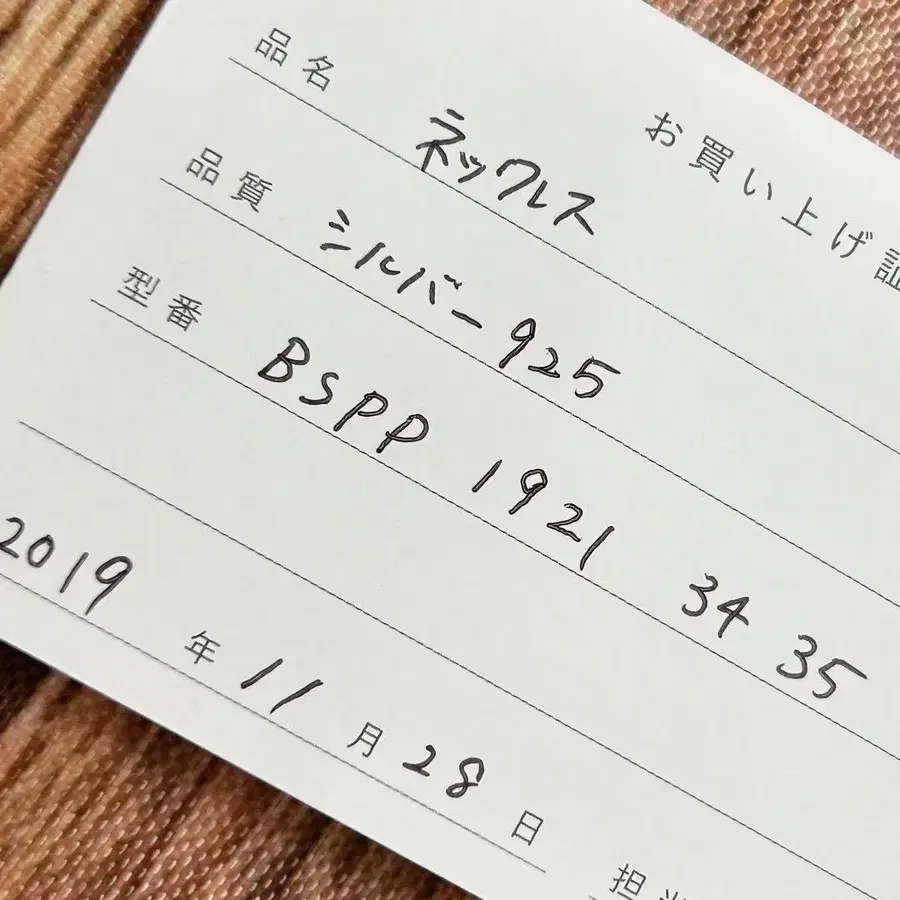 お買い上げ証
品名 ネックレス
品質 シルバー925
型番 BSPP 1921 34 35
2019年11月28日
担当